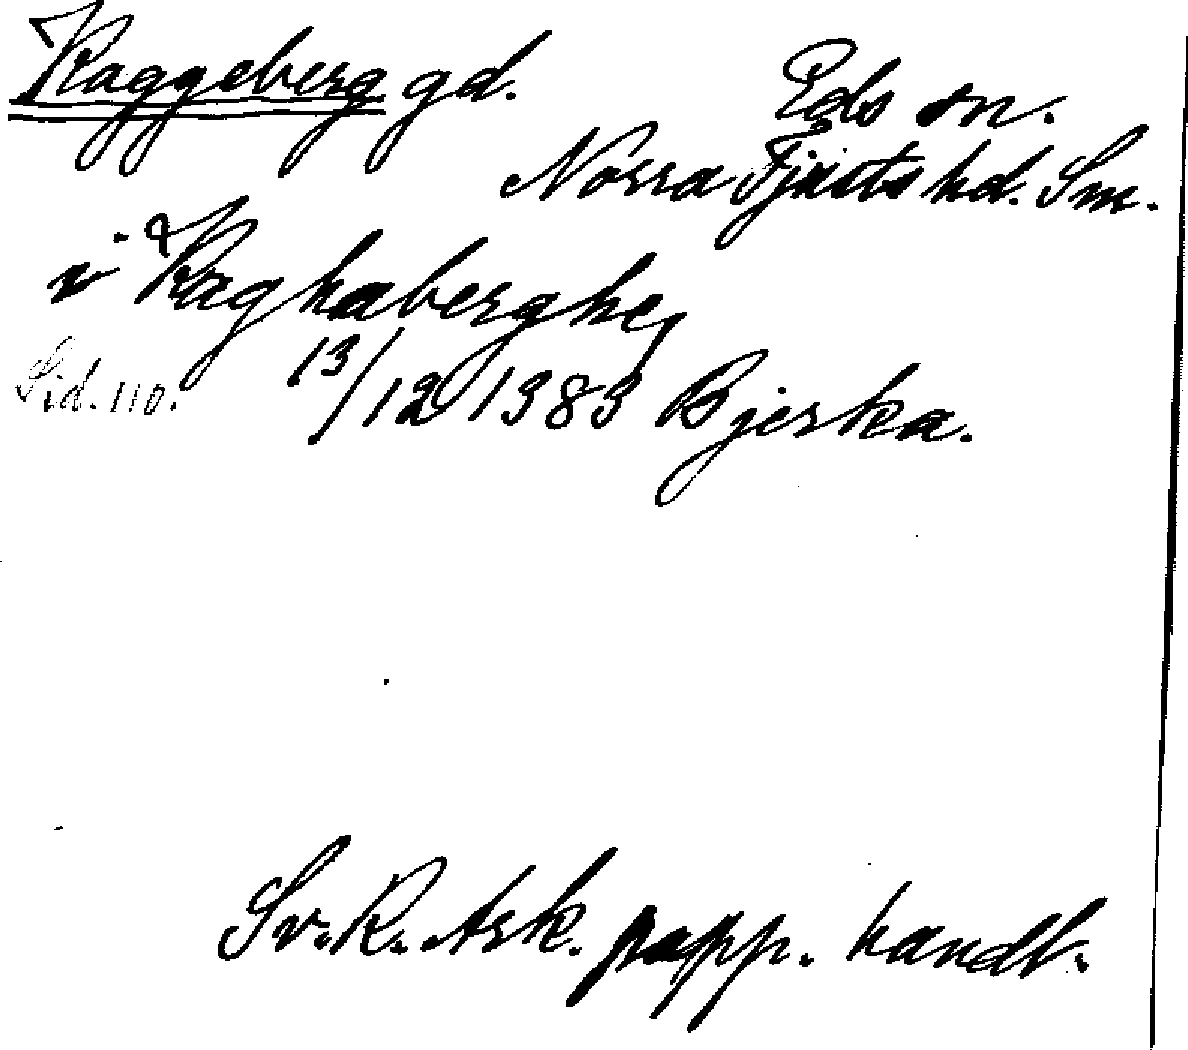 Kaggeberg gd.
Eds sn.
Norra Tjusts hd. Sm.
i Kaghaberghe,
Sid. 110.
13/12 1383 Bjerka.
Sv. R. Ark. papp. handl.